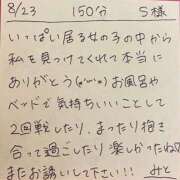 8/23 150分 S様
いっぱい居る女の子の中から
私を見つけてくれて本当に
ありがとう(๑･ω･๑)お風呂や
ベッドで気持ちいいことして
2回戦したり、まったり抱き
合って過ごしたり楽しかったね♡
またお誘いして下さい!! みと